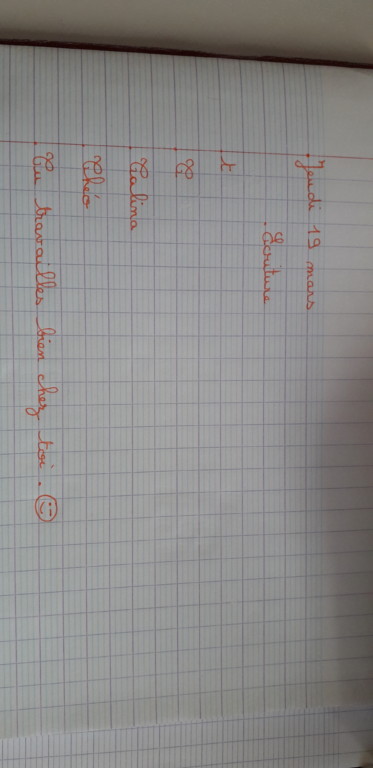 Jeudi 19 mars
Ecriture
t
T
Talina
Théo
Tu travailles bien chez toi.